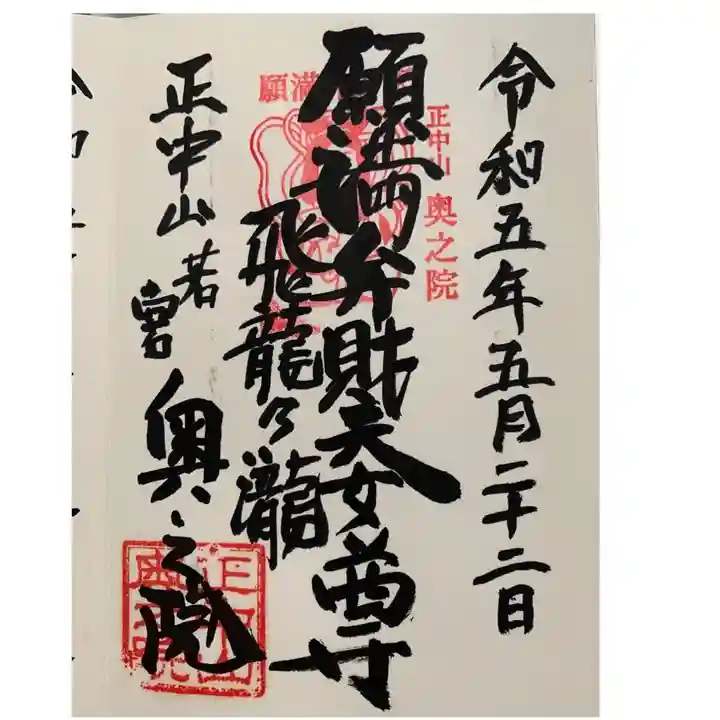 令和五年五月二十二日
正中山 奥之院
願満
願満弁財天女尊
飛龍乃瀧
正中山若宮
奥之院